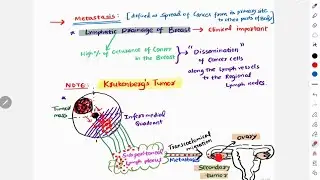 Metastasis: [defined as spread of Cancer from its primary site
to other parts of Body]
* Lymphatic Drainage of Breast → Clinical Important
High % of Occurance of Cancer
in the Breast
"Dissemination"
of Cancer cells
along the Lymph vessels
to the Regional
Lymph nodes.
NOTE: Krukenberg's Tumor
Tumor
mass
Inferomedial
Quadrant
Subperitoneal
Lymph plexus
Transcoelomic
migration
Metastasis
ovary
Secondary
tumor